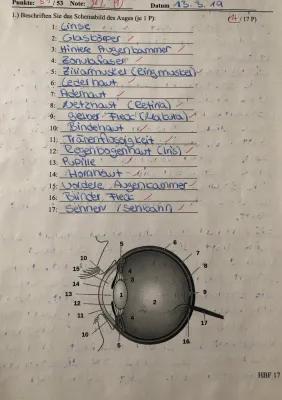 Punkte: /53 Note:
Datum 13.3.19
1.) Beschriften Sie das Schemabild des Auges (je 1 P): (17 P)
1: Linse
2: Glaskörper
3: Hintere Augenkammer
4: Zonulafaser
5: Ziliarmuskel (Ringmuskel)
6: Lederhaut
7: Aderhaut
8: Netzhaut (Retina)
9: gelber Fleck (Makula)
10: Bindehaut
11: Tränenflüssigkeit
12: Regenbogenhaut (Iris)
13: Pupille
14: Hornhaut
15: Vordere Augenkammer
16: Blinder Fleck
17: Sehnerv / Sehbahn
5
6
10
7
4
3
8
15
14
9
13
1
2
12
11
4
10
5
17
16
HBF 17